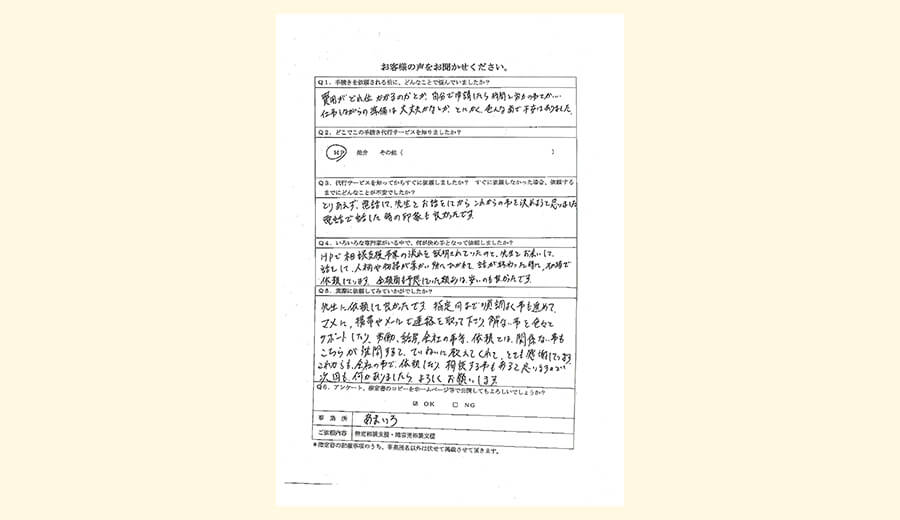 お客様の声をお聞かせください。
Q1．手続きを依頼される前に、どんなことで悩んでいましたか？
費用がどれ位かかるのかとか、自分で申請したら時間と労力の事とか…
仕事しながらの準備は大丈夫かなとか、とにかく、色んな面で不安はありました。
Q2．どこでこの手続き代行サービスを知りましたか？
HP 紹介 その他（ ）
Q3．代行サービスを知ってからすぐに依頼しましたか？ すぐに依頼しなかった場合、依頼する
までにどんなことが不安でしたか？
とりあえず、電話して、先生とお話をしてからこれからの事を決めようと思いました
電話で話した時の印象も良かったです。
Q4．いろいろな専門家がいる中で、何が決め手となって依頼しましたか？
HPで相談支援事業の流れを説明されていたのと、先生とお会いして、
話をして、人柄や物腰が柔かい所にひかれて、話が終わった時に、その場で
依頼しています。金額面も予想していた額よりは、安いのも良かったです。
Q5．実際に依頼してみていかがでしたか？
先生に依頼して良かったです。指定日まで順調に事も進めて、
マメに、携帯やメールで連絡を取って下さり、解らない事も色々と
サポートしたり、労働、給与、会社の事等、依頼とは、関係ない事も
こちらが質問すると、ていねいに教えてくれて、とても感謝しています
これからも、会社の事で、依頼したり 相談する事もあると思いますので
次回も何かありましたら よろしくお願いします
Q6．アンケート、指定書のコピーをホームページ等で公開してもよろしいでしょうか？
☑ OK □ NG
事業所 あまいろ
ご依頼内容 特定相談支援・障害児相談支援
＊指定書の記載事項のうち、事業所名以外は伏せて掲載させて頂きます。